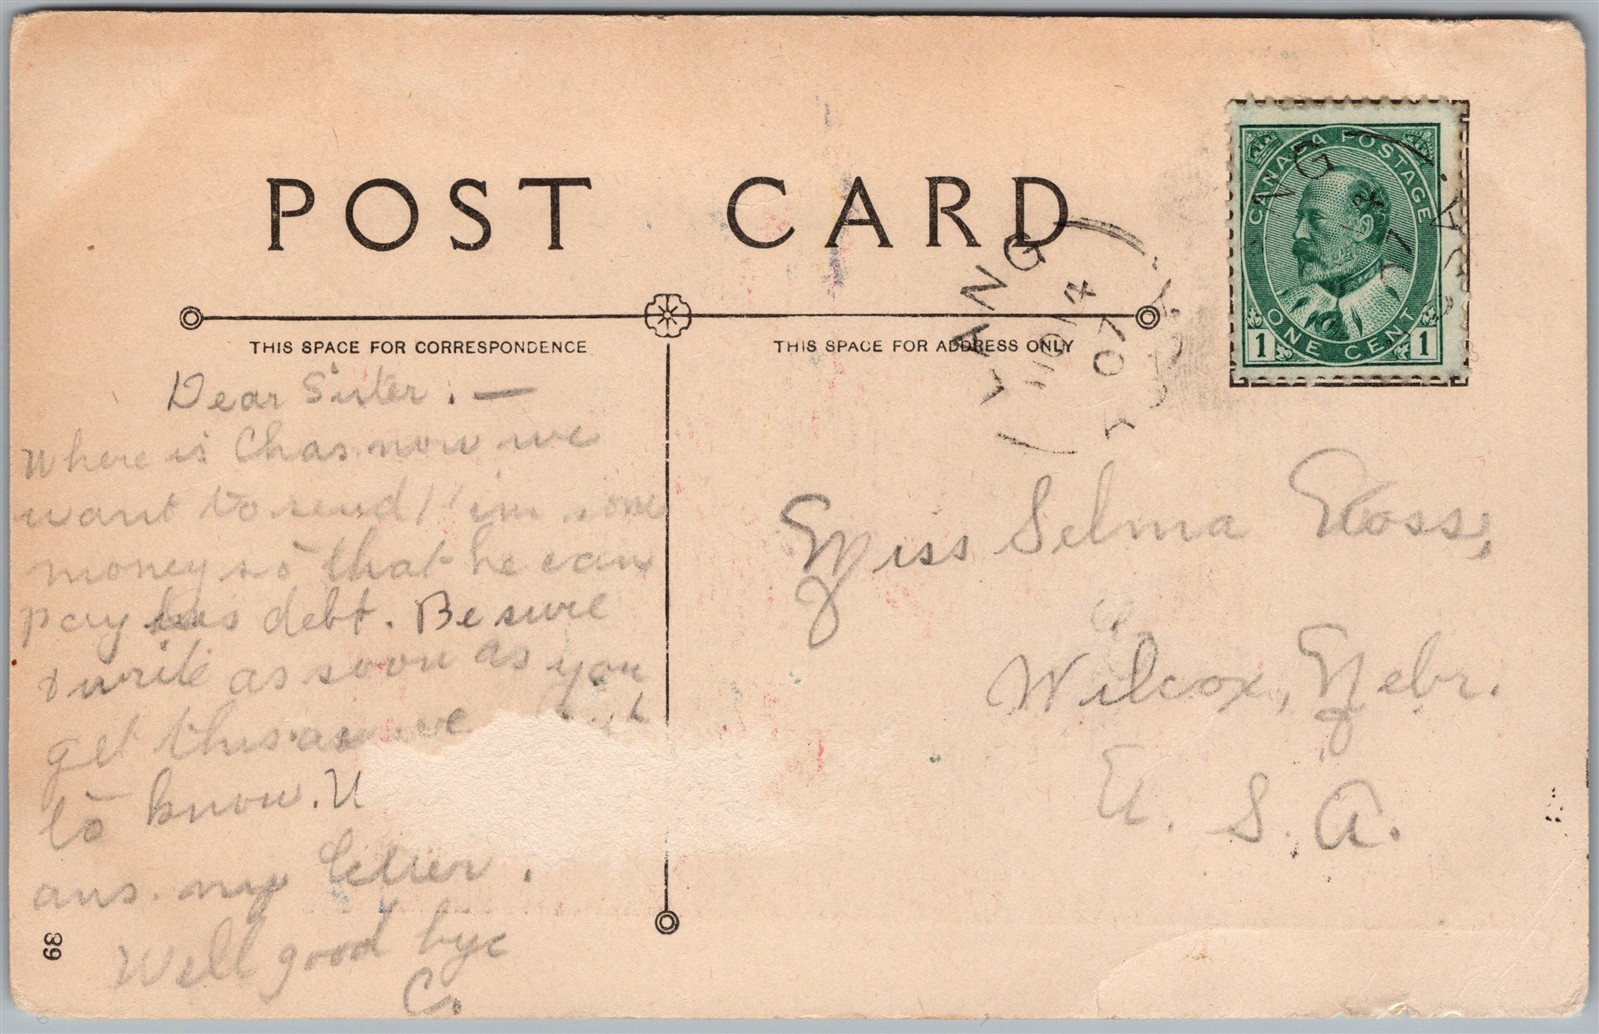 POST CARD
THIS SPACE FOR CORRESPONDENCE
THIS SPACE FOR ADDRESS ONLY
CANADA POSTAGE
ONE CENT
1 1
LANG
NO 4
07
NG
07
Dear Sister. —
Where is Chas now we
want to send him some
money so that he can
pay his debt. Be sure
& write as soon as you
get this as we
to know.
ans. my letter.
Well good bye
C.
Miss Selma Ross,
Wilcox, Nebr.
U. S. A.
89